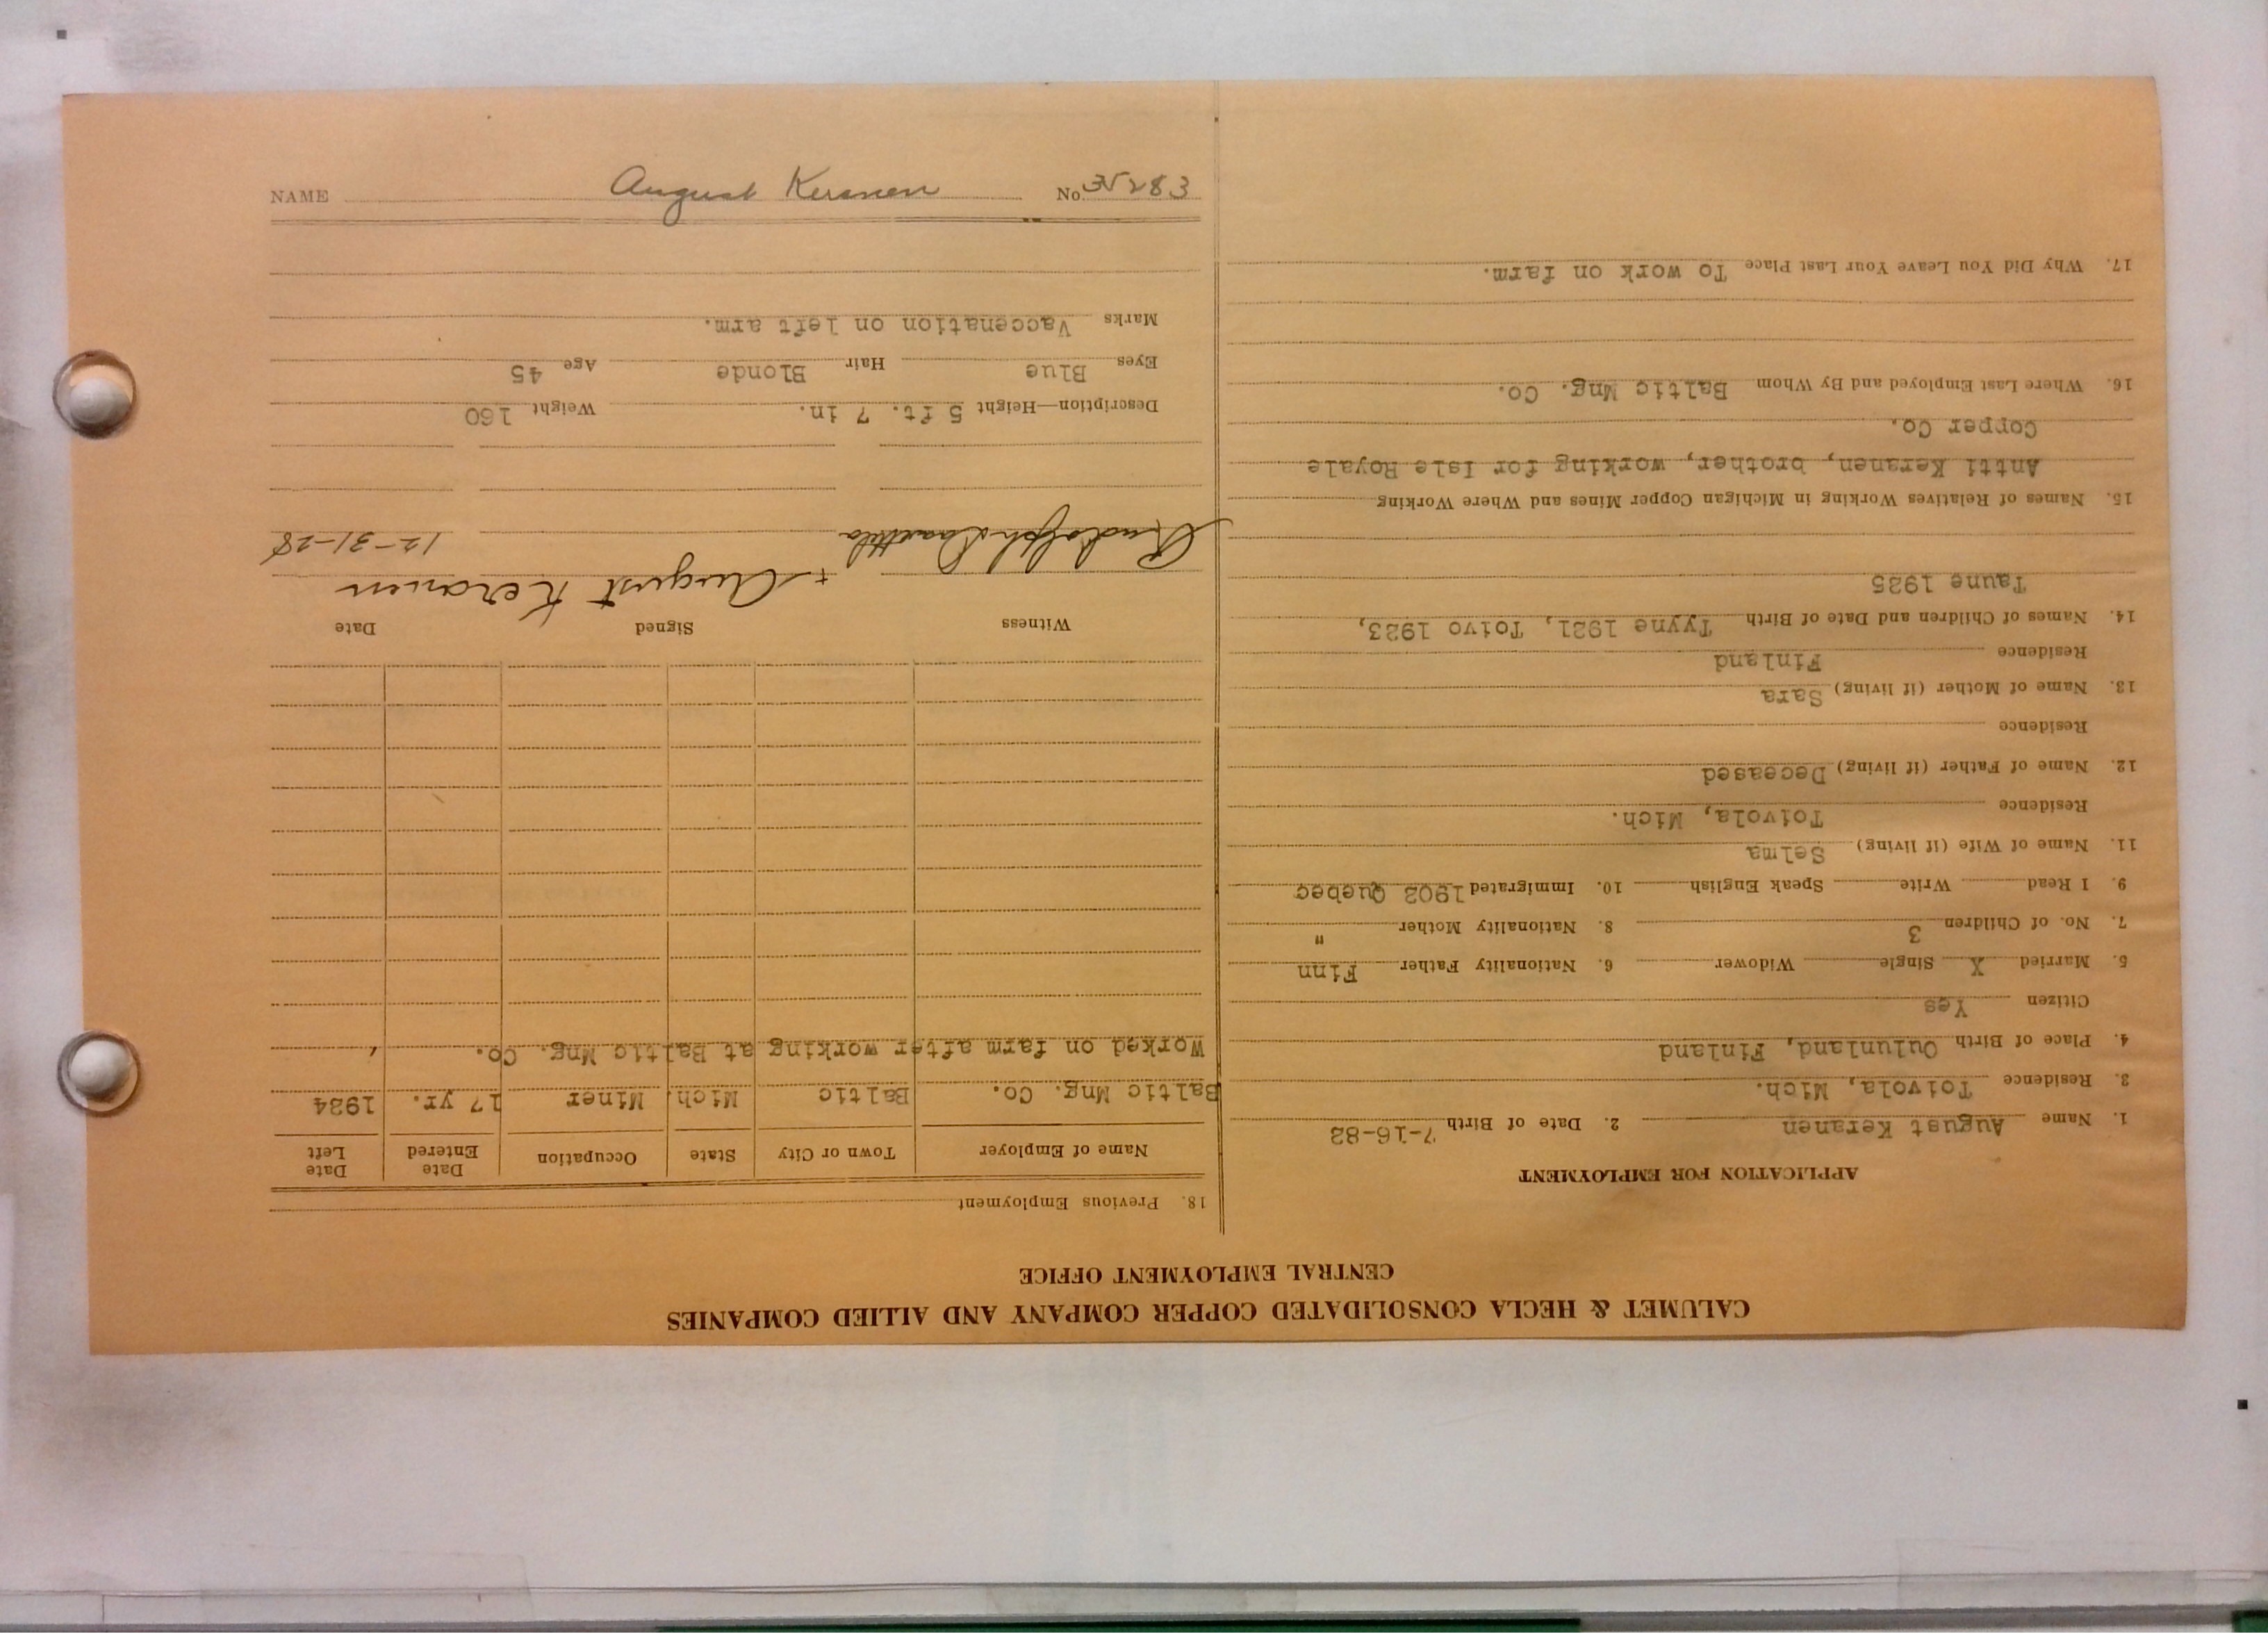 CALUMET & HECLA CONSOLIDATED COPPER COMPANY AND ALLIED COMPANIES
CENTRAL EMPLOYMENT OFFICE
APPLICATION FOR EMPLOYMENT
1. Name August Keranen 2. Date of Birth 7-16-82
3. Residence Toivola, Mich.
4. Place of Birth Oulunland, Finland
Citizen Yes
5. Married X Single Widower 6. Nationality Father Finn
7. No. of Children 3 8. Nationality Mother "
9. I Read Write Speak English 10. Immigrated 1902 Quebec
11. Name of Wife (if living) Selma
Residence Toivola, Mich.
12. Name of Father (if living) Deceased
Residence
13. Name of Mother (if living) Sara
Residence Finland
14. Names of Children and Date of Birth Tyyne 1921, Toivo 1923,
Taune 1925
15. Names of Relatives Working in Michigan Copper Mines and Where Working
Antti Keranen, brother, working for Isle Royale
Copper Co.
16. Where Last Employed and By Whom Baltic Mng. Co.
17. Why Did You Leave Your Last Place To work on farm.
18. Previous Employment
Name of Employer Town or City State Occupation Date Entered Date Left
Baltic Mng. Co. Baltic Mich. Miner 17 yr. 1924
Worked on farm after working at Baltic Mng. Co.
Witness Signed Date
Rudolph + August Keranen 12-31-28
Description—Height 5 ft. 7 in. Weight 160
Eyes Blue Hair Blonde Age 45
Marks Vaccenation on left arm.
NAME August Keranen No. 35283